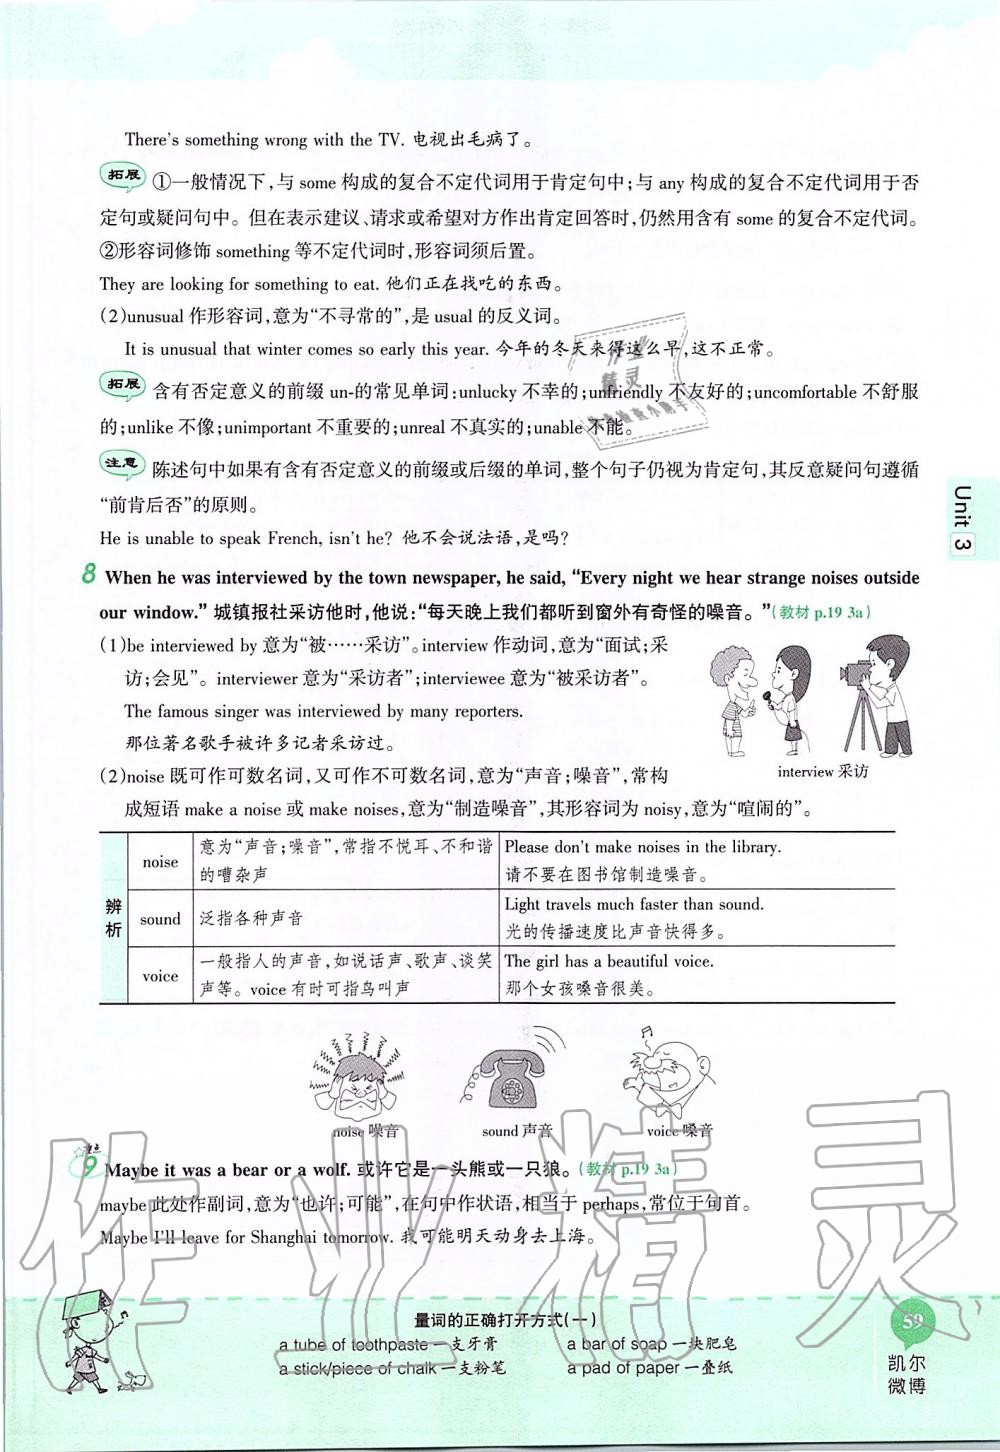 There's something wrong with the TV. 电视出毛病了。
拓展 ①一般情况下,与 some 构成的复合不定代词用于肯定句中;与 any 构成的复合不定代词用于否
定句或疑问句中。但在表示建议、请求或希望对方作出肯定回答时,仍然用含有 some 的复合不定代词。
②形容词修饰 something 等不定代词时,形容词须后置。
They are looking for something to eat. 他们正在找吃的东西。
(2)unusual 作形容词,意为“不寻常的”,是 usual 的反义词。
It is unusual that winter comes so early this year. 今年的冬天来得这么早,这不正常。
拓展 含有否定意义的前缀 un-的常见单词:unlucky 不幸的;unfriendly 不友好的;uncomfortable 不舒服
的;unlike 不像;unimportant 不重要的;unreal 不真实的;unable 不能。
注意 陈述句中如果有含有否定意义的前缀或后缀的单词,整个句子仍视为肯定句,其反意疑问句遵循
“前肯后否”的原则。
He is unable to speak French, isn't he? 他不会说法语,是吗?
Unit 3
8 When he was interviewed by the town newspaper, he said, “Every night we hear strange noises outside
our window.” 城镇报社采访他时,他说:“每天晚上我们都听到窗外有奇怪的噪音。”(教材 p.19 3a)
(1)be interviewed by 意为“被……采访”。interview 作动词,意为“面试;采
访;会见”。interviewer 意为“采访者”;interviewee 意为“被采访者”。
The famous singer was interviewed by many reporters.
那位著名歌手被许多记者采访过。
interview 采访
(2)noise 既可作可数名词,又可作不可数名词,意为“声音;噪音”,常构
成短语 make a noise 或 make noises,意为“制造噪音”,其形容词为 noisy,意为“喧闹的”。
辨析
noise
意为“声音;噪音”,常指不悦耳、不和谐
的嘈杂声
Please don't make noises in the library.
请不要在图书馆制造噪音。
sound
泛指各种声音
Light travels much faster than sound.
光的传播速度比声音快得多。
voice
一般指人的声音,如说话声、歌声、谈笑
声等。voice 有时可指鸟叫声
The girl has a beautiful voice.
那个女孩嗓音很美。
noise 噪音
sound 声音
voice 嗓音
重点
9 Maybe it was a bear or a wolf. 或许它是一头熊或一只狼。(教材 p.19 3a)
maybe 此处作副词,意为“也许;可能”,在句中作状语,相当于 perhaps,常位于句首。
Maybe I'll leave for Shanghai tomorrow. 我可能明天动身去上海。
作业精灵
作业
精灵
量词的正确打开方式(一)
a tube of toothpaste 一支牙膏
a bar of soap 一块肥皂
a stick/piece of chalk 一支粉笔
a pad of paper 一叠纸
59
凯尔
微博